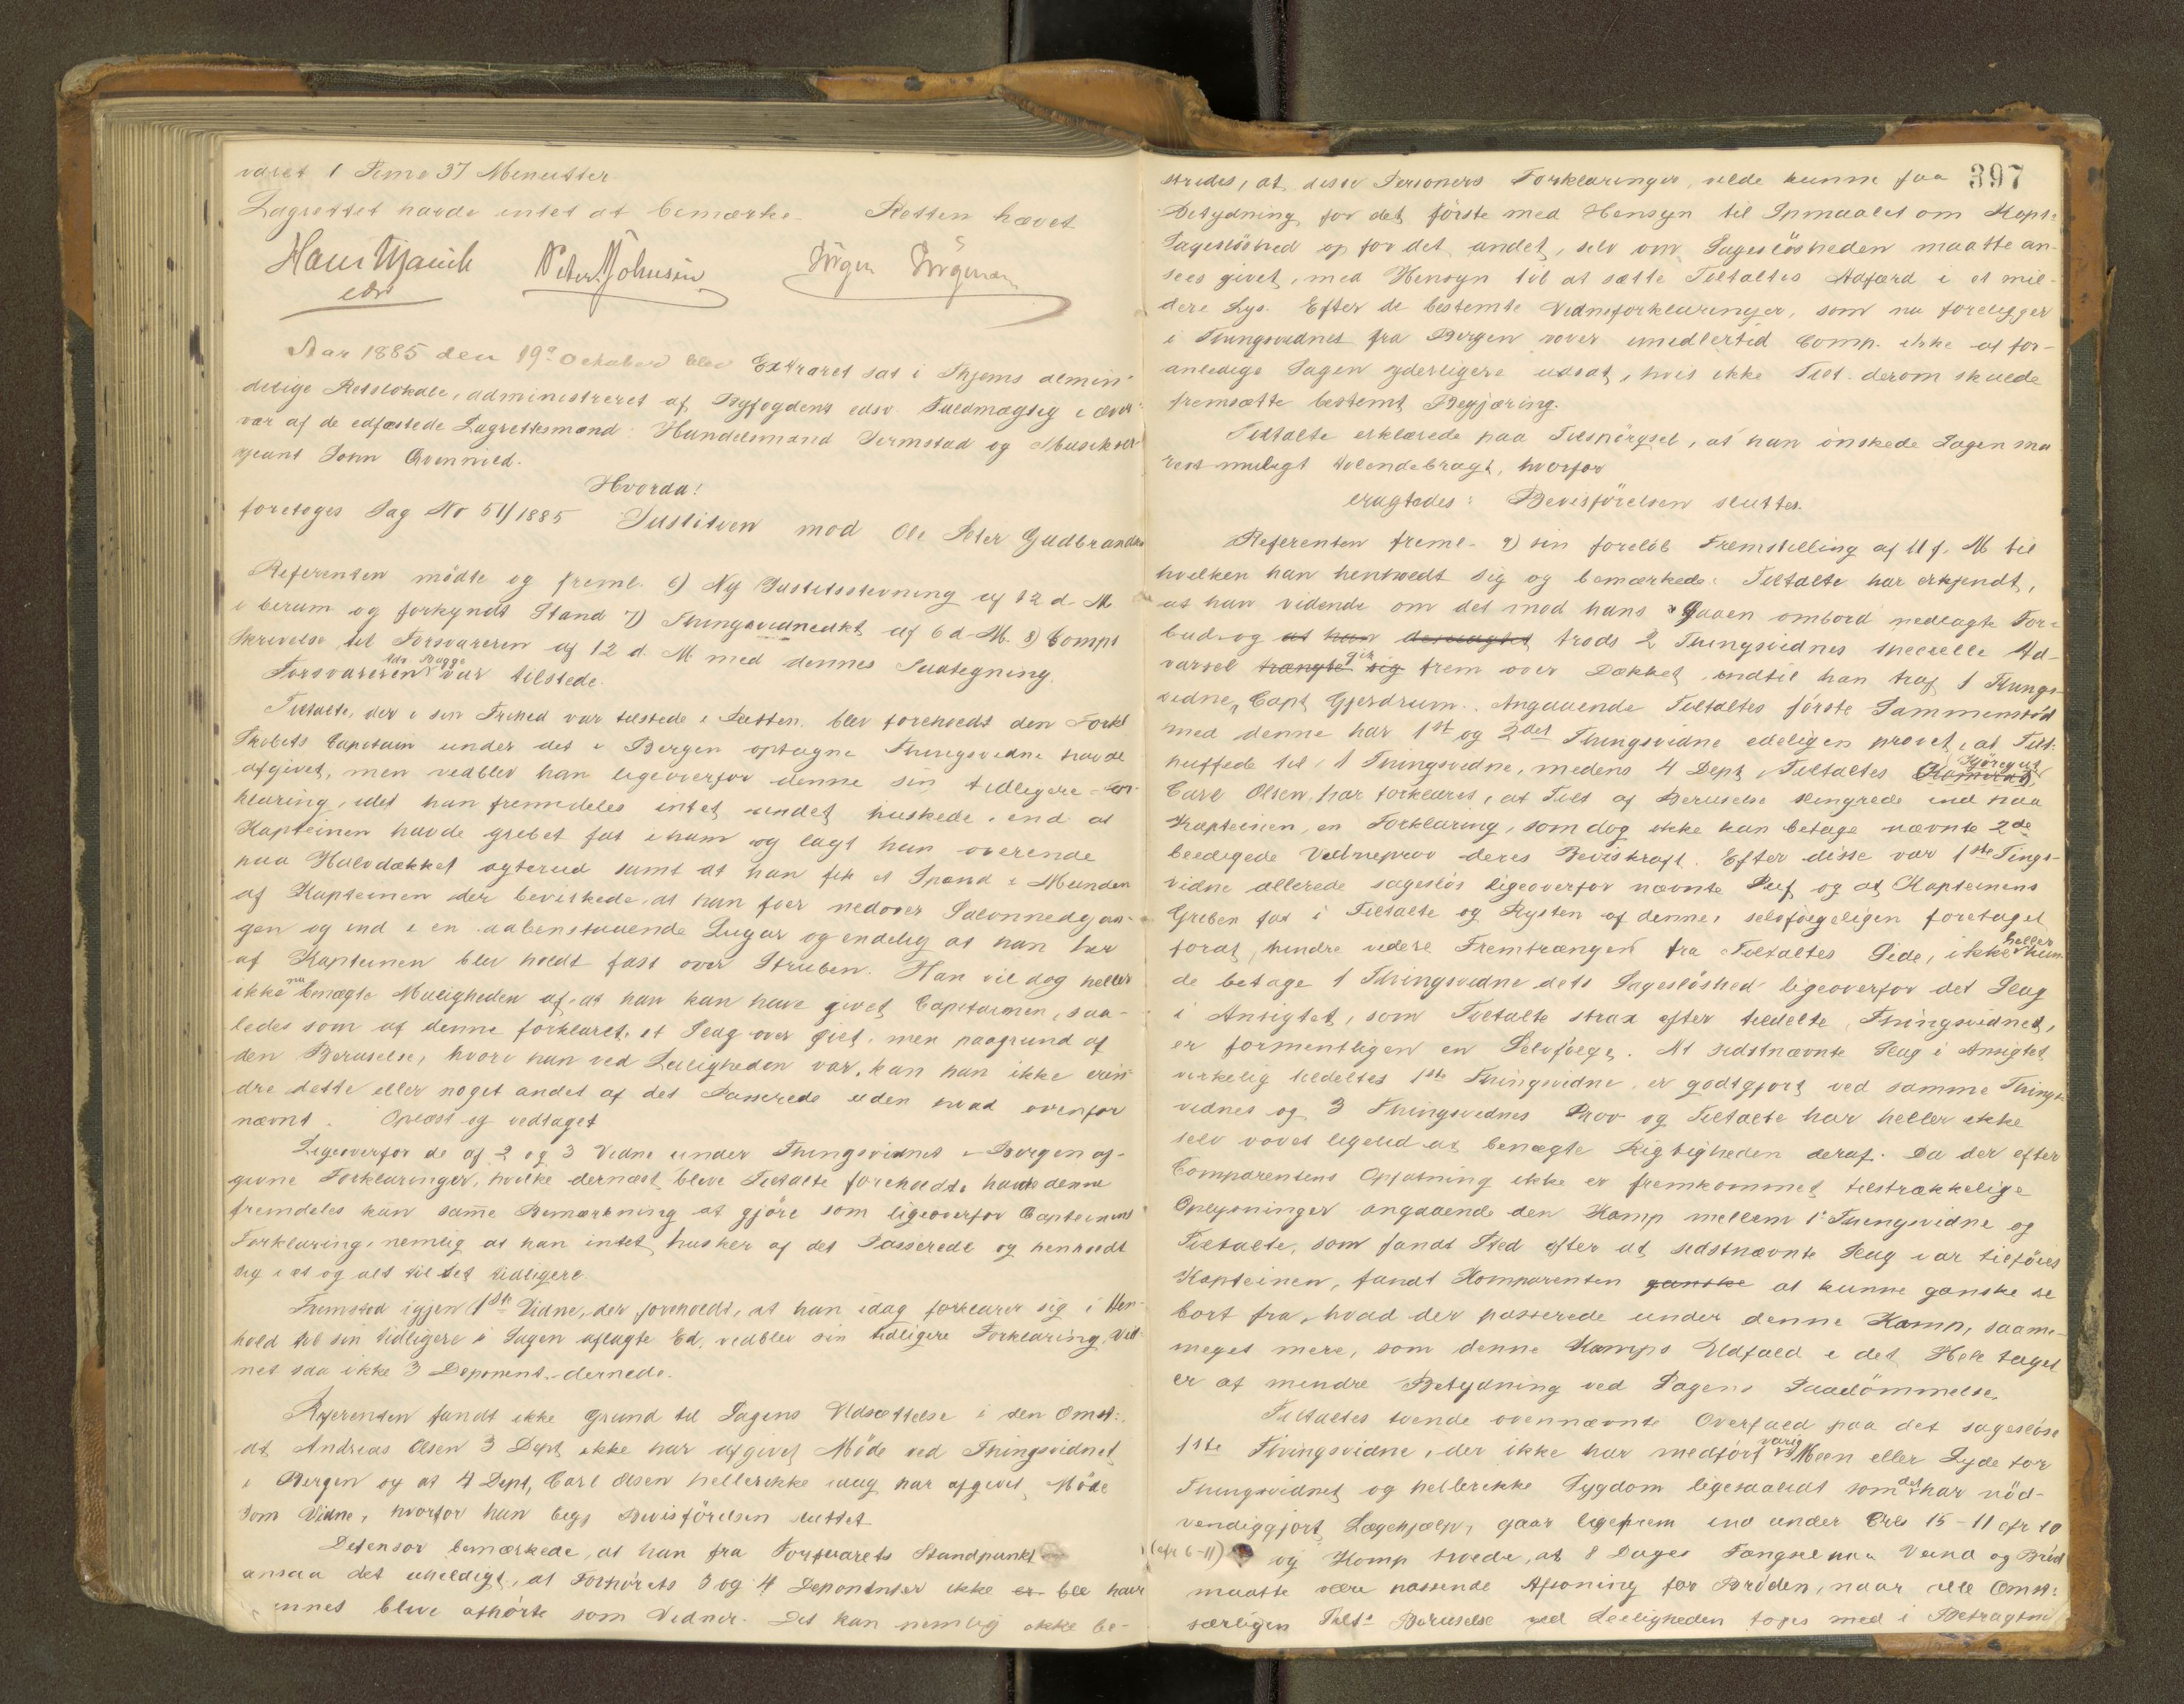 varet 1 Time 37 Minutter
Lagrettet havde intet at bemærke. Retten hævet
Peter Johnsen Jörgen Jörgensen
edsv
Aar 1885 den 19de October blev Extraret sat i Skjems almin-
delige Retslokale, administreret af Byfogdens edsv. Fuldmægtig i over-
vær af de edfæstede Lagrettesmænd: Handelsmand Sermstad og Musikser-
geant John Qvennild.
Hvorda!
foretoges Sag No 51/1885 Justitien mod Ole Peter Gudbrandsen
Referenten mödte og freml. 6) Ny Justitsstevning af 12 d. M.
i beram. og forkyndt Stand 7) Thingsvidneakt af 6 d. M. 8) Comps
Skrivelse til Forsvareren af 12 d. M med dennes Paategning.
Forsvareren Adv. Bugge var tilstede.
Tiltalte, der i sin Frihed var tilstede i Retten, blev foreholdt den Forkl.
Skibets Capetain under det i Bergen optagne Thingsvidne havde
afgivet, men vedblev han ligeoverfor denne sin tidligere For-
klaring, idet han fremdeles intet andet huskede, end at
Kapteinen havde grebet fat i ham og lagt han overende
paa Halvdækket agterud samt at han fik et Spænd i Munden
af Kapteinen der bevirkede, at han foer nedover Salonnedgan-
gen og ind i en aabenstaaende Lugar og endelig at han her
af Kapteinen blev holdt fast over Struben. Han vil dog heller
ikke nu benægte Muligheden af, at han kan have givet Capitainen, saa-
ledes som af denne forklaret, et Slag over Øiet, men paagrund af
den Beruselse, hvori han ved Leiligheden var, kan han ikke erin-
dre dette eller noget andet af det Passerede uden hvad ovenfor
nævnt. Oplæst og vedtaget
Ligeoverfor de af 2 og 3 Vidne under Thingsvidnet i Bergen af-
givne Forklaringer, hvilke dernæst bleve Tiltalte foreholdt, havde denne
fremdeles kun samme Bemærkning at gjöre som ligeoverfor Capteinens
Forklaring, nemlig at han intet husker af det Passerede og henholdt
sig i et og alt til det tidligere
Fremstod igjen 1ste Vidne, der foreholdt, at han idag forklarer sig i Hen-
hold til sin tidligere i Sagen aflagte Ed, vedblev sin tidligere Forklaring. Vid-
net saa ikke 3 Deponent dernede.
Referenten fandt ikke Grund til Sagens Udsættelse i den Omst:,
at Andreas Olsen 3 Dept ikke har afgivet Möde ved Thingsvidnet
i Bergen og at 4 Dept, Carl Olsen hellerikke idag har afgivet Möde
som Vidne, hvorfor han begj. Bevisförelsen sluttet
Defensor bemærkede, at han fra Forsvarets Standpunkt
ansaa det uheldigt, at Forhörets 3 og 4 Deponenter ikke er ble have
kunnet bleve afhörte som Vidner. Det kan nemlig ikke be-
397
strides, at disse Personers Forklaringer vilde kunne faa
Betydning for det förste med Hensyn til Spmaalet om Kapts
Sageslöshed og for det andet, selv om Sageslösheden maatte an-
sees givet, med Hensyn til at sætte Tiltaltes Adfærd i et mil-
dere Lys. Efter de bestemte Vidneforklaringer, som nu foreligger
i Thingsvidnet fra Bergen vover imidlertid Comp. ikke at for-
anledige Sagen yderligere udsat, hvis ikke Tilt. derom skulde
fremsætte bestemt Begjæring.
Tiltalte erklærede paa Tilspörgsel, at han önskede Sagen sna-
rest muligt tilendebragt, hvorfor
eragtedes: Bevisförelsen sluttes.
Referenten freml. 9) sin foreløb. Fremstilling af 11 f. M til
hvilken han henholdt sig og bemærkede: Tiltalte har erkjendt,
at han vidende om det mod hans Gaaen ombord nedlagte For-
bud og at han desuagtet trods 2 Thingsvidnes specielle Ad-
varsel trængte gik sig frem over Dækket, indtil han traf 1 Things-
vidne, Capt Gjerdrum. Angaaende Tiltaltes förste Sammenstöd
med denne har 1st og 2det Thingsvidne edeligen provet, at Tilt.
puffede til 1 Thingsvidne, medens 4 Dept, Tiltaltes
Carl Olsen har forklaret, at Tilt af Beruselse slingrede ind paa
Kapteinen, en Forklaring, som dog ikke kan betage nævnte 2de
beedigede Vidneprov deres Beviskraft. Efter disse var 1ste Tings-
vidne allerede sageslös ligeoverfor nævnte Puf og at Kapteinens
Griben fat i Tiltalte og Rysten af denne, selvfölgeligen foretaget
forat hindre videre Fremtrængen fra Tiltaltes Side, ikke heller kun-
de betage 1 Thingsvidne dets Sageslöshed ligeoverfor det Slag
i Ansigtet, som Tiltalte strax efter tildelte Thingsvidnet,
er formentligen en Selvfölge. At sidstnævnte Slag i Ansigtet
virkelig tildeltes 1ste Thingsvidne, er godtgjort ved samme Things-
vidnes og 3 Thingsvidnes Prov og Tiltalte har heller ikke
selv vovet ligetil at benægte Rigtigheden deraf. Da der efter
Comparentens Opfatning ikke er fremkommet tilstrækkelige
Oplysninger angaaende den Kamp mellem 1' Thingsvidne og
Tiltalte, som fandt Sted efter at sidstnævnte Slag var tilföiet
Kapteinen, fandt Komparenten ganske at kunne ganske se
bort fra, hvad der passerede under denne Kamp, saame-
meget mere, som denne Kamps Udfald i det Hele taget
er af mindre Betydning ved Sagens Paadömmelse.
Tiltaltes tvende ovennævnte Overfald paa det sageslöse
1ste Thingsvidne, der ikke har medfört varig Meen eller Lyde for
Thingsvidnet og hellerikke Sygdom ligesaalidt som det har nöd-
vendiggjort Lægehjælp, gaar ligefrem ind under Crl 15-11 cfr 10
(cfr 6-11) og Komp. troede, at 8 Dages Fængsel paa Vand og Bröd
maatte være passende Afsoning for Bröden, naar alle Omst:
særligen Tilts Beruselse ved Leiligheden toges med i Betragtn